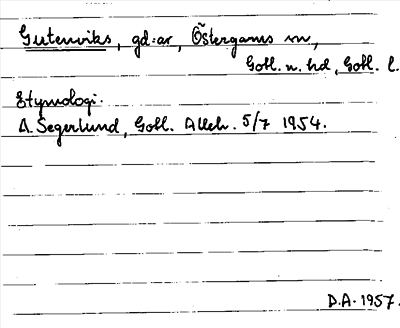 Gutenviks, gd:ar, Östergarns sn,
Gotl. n. hd, Gotl. l.
Etymologi.
A. Segerlund, Gotl. Alleh. 5/7 1954.
D.A. 1957.